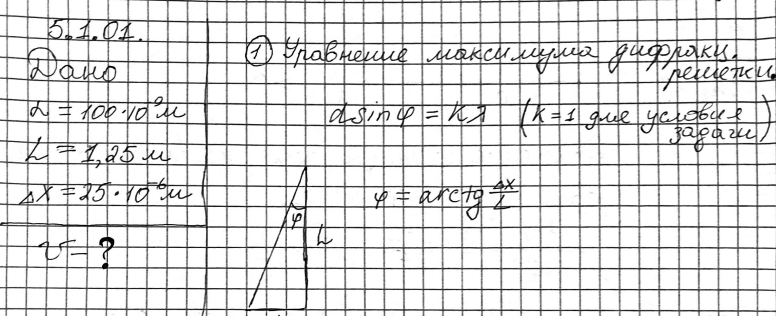 5.1.01.
Дано
d = 100·10⁻⁹ м
L = 1,25 м
Δx = 25·10⁻⁶ м
v = ?
① Уравнение максимума дифракц.
решетки.
d sin φ = kλ (k = 1 для условия
задачи)
φ = arctg Δx/L
φ
L